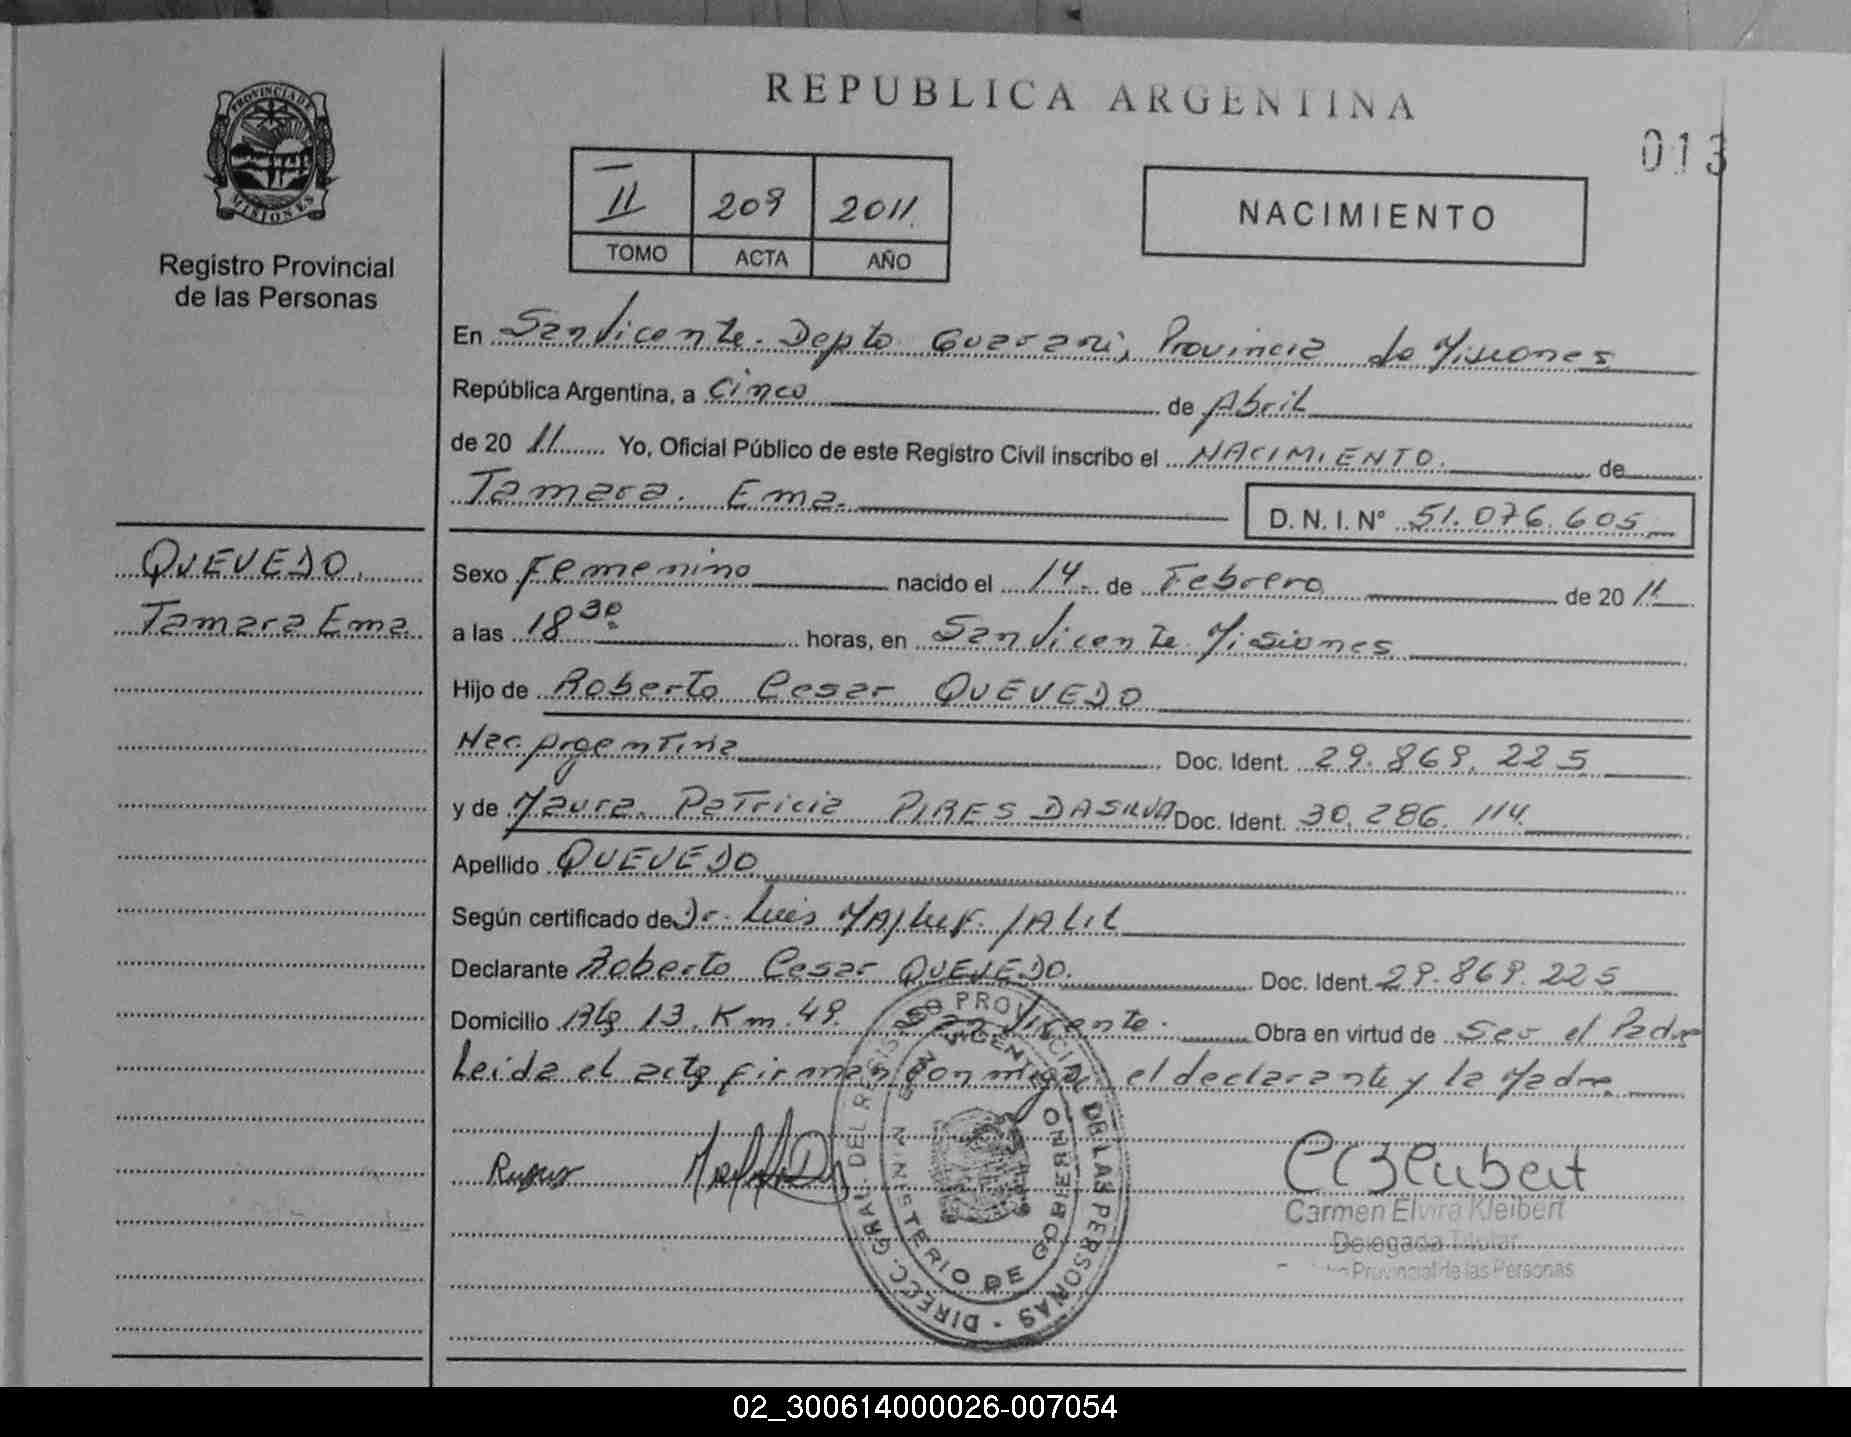 REPUBLICA ARGENTINA
013
PROVINCIA DE
MISIONES
Registro Provincial
de las Personas
II 209 2011
TOMO ACTA AÑO
NACIMIENTO
En San Vicente. Depto Guarani, Provincia de Misiones
República Argentina, a Cinco de Abril
de 2011 Yo, Oficial Público de este Registro Civil inscribo el NACIMIENTO. de
Tamara. Ema.
D. N. I. Nº 51.076.605
QUEVEDO.
Tamara Ema
Sexo Femenino nacido el 14 de Febrero de 2011
a las 18 30 horas, en San Vicente Misiones
Hijo de Roberto Cesar QUEVEDO
Nac. Argentina Doc. Ident. 29.869.225
y de Maura. Patricia PIRES DASILVA Doc. Ident. 30.286.114
Apellido QUEVEDO
Según certificado de Dr. Luis JALIL
Declarante Roberto Cesar QUEVEDO. Doc. Ident. 29.869.225
Domicilio 13. Km. 49. San Vicente. Obra en virtud de Ser el Padre
Leida el acta firman conmigo el declarante y la Madre
DIRECC. GRAL. DEL REGISTRO PROVINCIAL DE LAS PERSONAS
MINISTERIO DE GOBIERNO
SAN VICENTE
Carmen Elvira Kleibert
Delegada Titular
Provincial de las Personas
02_300614000026-007054